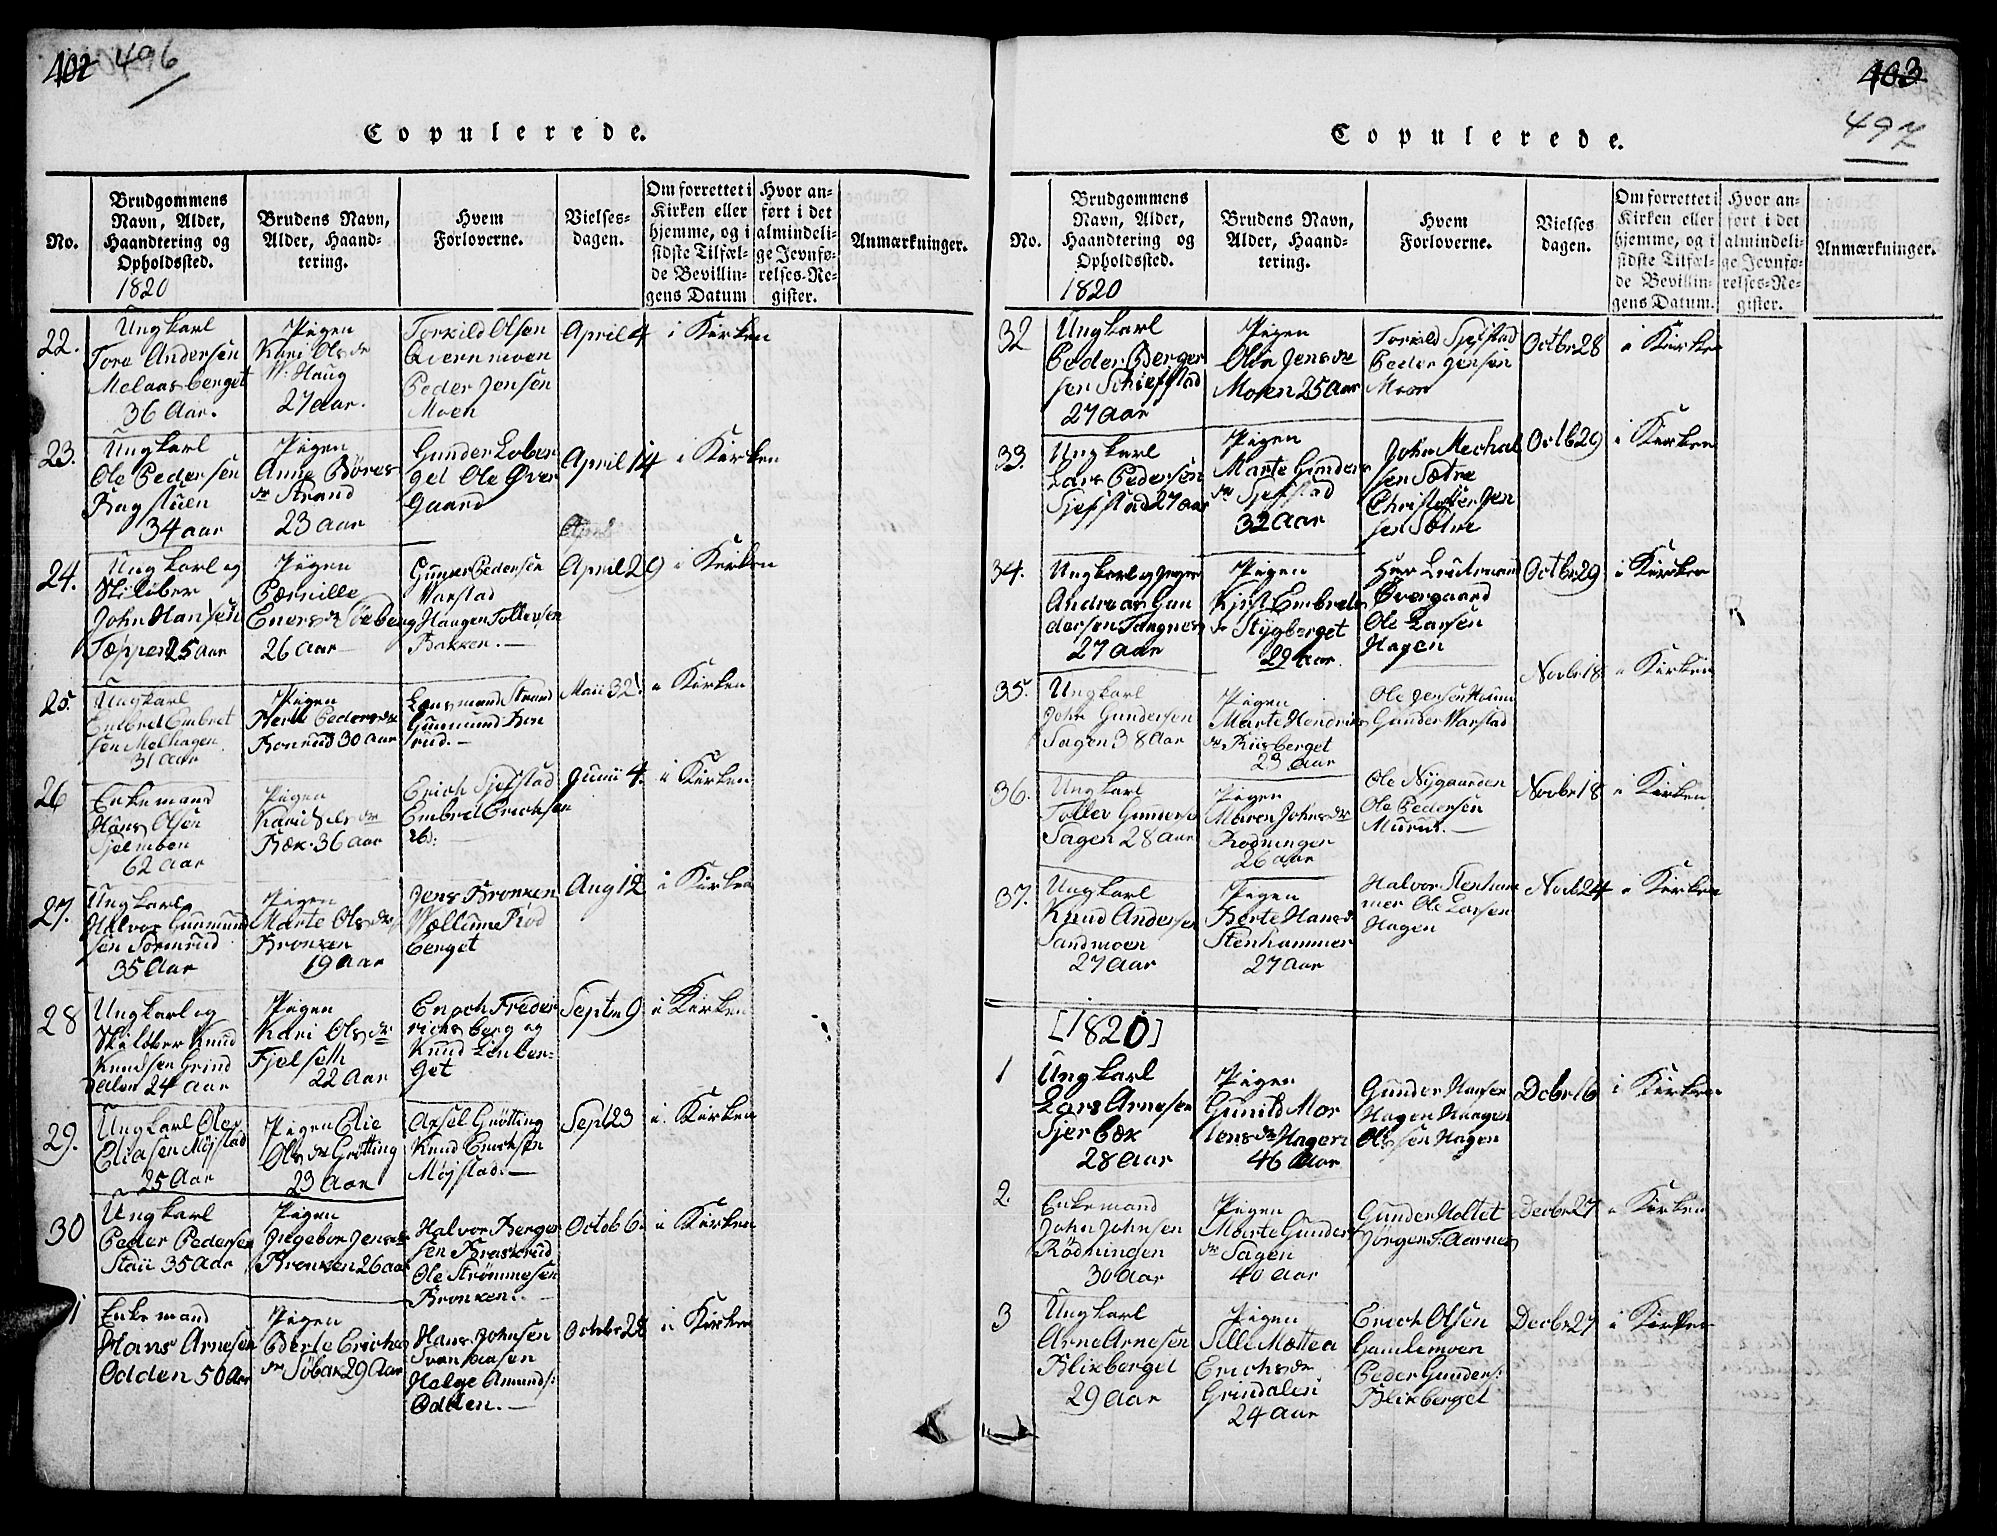 402 496
Copulerede.
No.
Brudgommens
Navn, Alder,
Haandtering og
Opholdssted.
1820
Brudens Navn,
Alder, Haand-
tering.
Hvem
Forloverne.
Vielses-
dagen.
Om forrettet i
Kirken eller
hjemme, og i
sidste Tilfæl-
de Bevillin-
gens Datum
Hvor an-
ført i det
almindeli-
ge Jevnfø-
relses-Re-
gister.
Anmærkninger.
22.
Ungkarl
Tore Andersen
Melaasberget
36 Aar.
Pigen
Kari Olsdr
Haug
27 aar.
Torkild Olsen
Qvernmoen
Peder Jensen
Moen
April 4
i Kirken
23.
Ungkarl
Ole Pedersen
Bagstuen
34 aar
Pigen
Anne Børes
dr Strand
23 aar
Gunder Loben
get Ole Øver
Gaard
April 14
i Kirken
April
24.
Ungkarl og
Skiløber
John Hansen
Tæppen 25 aar
Pigen
Pernille
Enersdr Søeberg
26 aar
Gunder Pedersen
Varstad
Haagen Tollersen
Bakken.—
April 29
i Kirken
25.
Ungkarl
Embret Embret
sen Melhagen
31 aar
Pigen
Berit Pedersdr
Bonrud 30 Aar
Lensmand Strand
Gunmund Bon
rud.—
Maii 32
i Kirken
26
Enkemand
Hans Olsen
Sjelmoen
62 aar
Pigen
Kari Nilsdr
Bæk. 36 aar
Erich Sjefstad
Embret Erichsen
ibd:
Junii 4.
i Kirken
27.
Ungkarl
Halvor Gunmund
sen Sormrud
35 Aar
Pigen
Marte Olsdr
Bronken
19 Aar
Jens Bronken
Wællume Rød
berget
Aug 12
i Kirken
28
Ungkarl og
Skiløber Knud
Knudsen Grind
dalen 24 Aar
Pigen
Kari Olsdr
Fjelseth
22 Aar
Enoch Freder
richsberg og
Knud Linber-
get
Septm 9
i Kirken
29.
Ungkarl Ole
Eliasen Møjstad
25 Aar
Pigen Elie
Olsdr Grøtting
23 Aar
Axsel Grøtting
Knud Erichsen
Møjstad.—
Sept 23
i Kirken
30
Ungkarl
Peder Pedersen
Staii 35 Aar
Pigen
Ingebor Jensdr
Bronken 26 aar
Halvor Berger
sen Braskrud
Ole Strømmesen
Bronken.
Octob 6
i Kirken
1
Enkemand
Hans Arnesen
Odden 50 Aar
Pigen
Berte Erichs
dr Søbak 29 Aar
Hans Johnsen
Svansaasen
Helge Amunds:
Odden.—
Octobr 28
i Kirken
403
497
Copulerede.
No.
Brudgommens
Navn, Alder,
Haandtering og
Opholdssted.
1820
Brudens Navn,
Alder, Haand-
tering.
Hvem
Forloverne.
Vielses
dagen.
Om forrettet i
Kirken eller
hjemme, og i
sidste Tilfæl-
de Bevillin-
gens Datum.
Hvor an-
ført i det
almindeli-
ge Jevnfø-
relses-Re-
gister.
Anmærkninger.
32
Ungkarl
Peder Berger
sen Schiefstad
27 Aar
Pigen
Olia Jensdr
Moen 25 Aar
Torkild Sjefstad
Peder Jensen
Moen
Octbr 28
i Kirken
33.
Ungkarl
Lars Pedersen
Sjefstad 27 aar
Pigen
Marte Gunders
dr Sjefstad
32 Aar
John Mechal
sen Sætre
Christoffer Jen
sen Sætre
Octb 29
i Kirken
34.
Ungkarl og Jæger
Andreas Gun
dersen Tangnes
27 aar
Pigen
Kjrst Embrets
dr Stygberget
29 Aar
Herr Leutenand
Øvergaard
Ole Larsen
Hagen
Octbr 29
i Kirken
35.
Ungkarl
John Gundersen
Sagen 38 Aar
Pigen
Marte Hendrics
dr Riisberget
23 aar
Ole Jensen Hoium
Gunder Varstad
Novbr 18
i Kirken
36.
Ungkarl
Toller Gunders
Sagen 28 Aar
Pigen
Maren Johnsdr
Rødningen
26 aar
Ole Nygaarden
Ole Pedersen
Murud.—
Novbr 18
i Kirken
37.
Ungkarl
Knud Andersen
Sandmoen
27 aar
Pigen
Berte Hansdr
Stenhammer
27 Aar
Halvor Stenham
mer Ole Larsen
Hagen
Novb 24
i Kirken
[1820]
1
Ungkarl
Lars Arnesen
Sjerbæk
28 Aar
Pigen
Gunild Mor
tensdr Hagen
46 Aar
Gunder Hansen
Hagen Haagen
Olssen Hagen
Decbr 16
i Kirken
2.
Enkemand
John Johnsen
Rødningen
30 Aar
Pigen
Marte Gunders
dr Sagen
40 Aar
Gunder Holtet
Jørgen T. Aarnes
Decbr 27
i Kirken
3
Ungkarl
Arne Arnesen
Blixberget
29 Aar
Pigen
Sille Mattea
Erichsdr
Grindalen
24 Aar
Erich Olsen
Gamlemoen
Peder Gunders:
Blixberget
Decbr 27
i Kirken